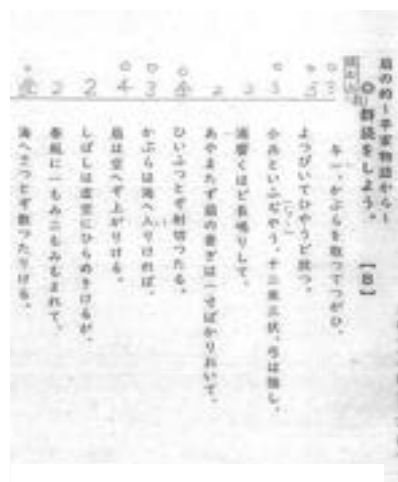 扇の的ー平家物語からー
◎群読をしよう。 【B】
与一、かぶらを取つてつがひ、
よつぴいてひやうど放つ。
小兵といふぢやう、十二束三伏、弓は強し、
浦響くほど長鳴りして、
あやまたず扇の要ぎは一寸ばかりおいて、
ひいふつとぞ射切つたる。
かぶらは海へ入りければ、
扇は空へぞ上がりける。
しばしは虚空にひらめきけるが、
春風に一もみ二もみもまれて、
海へさつとぞ散つたりける。